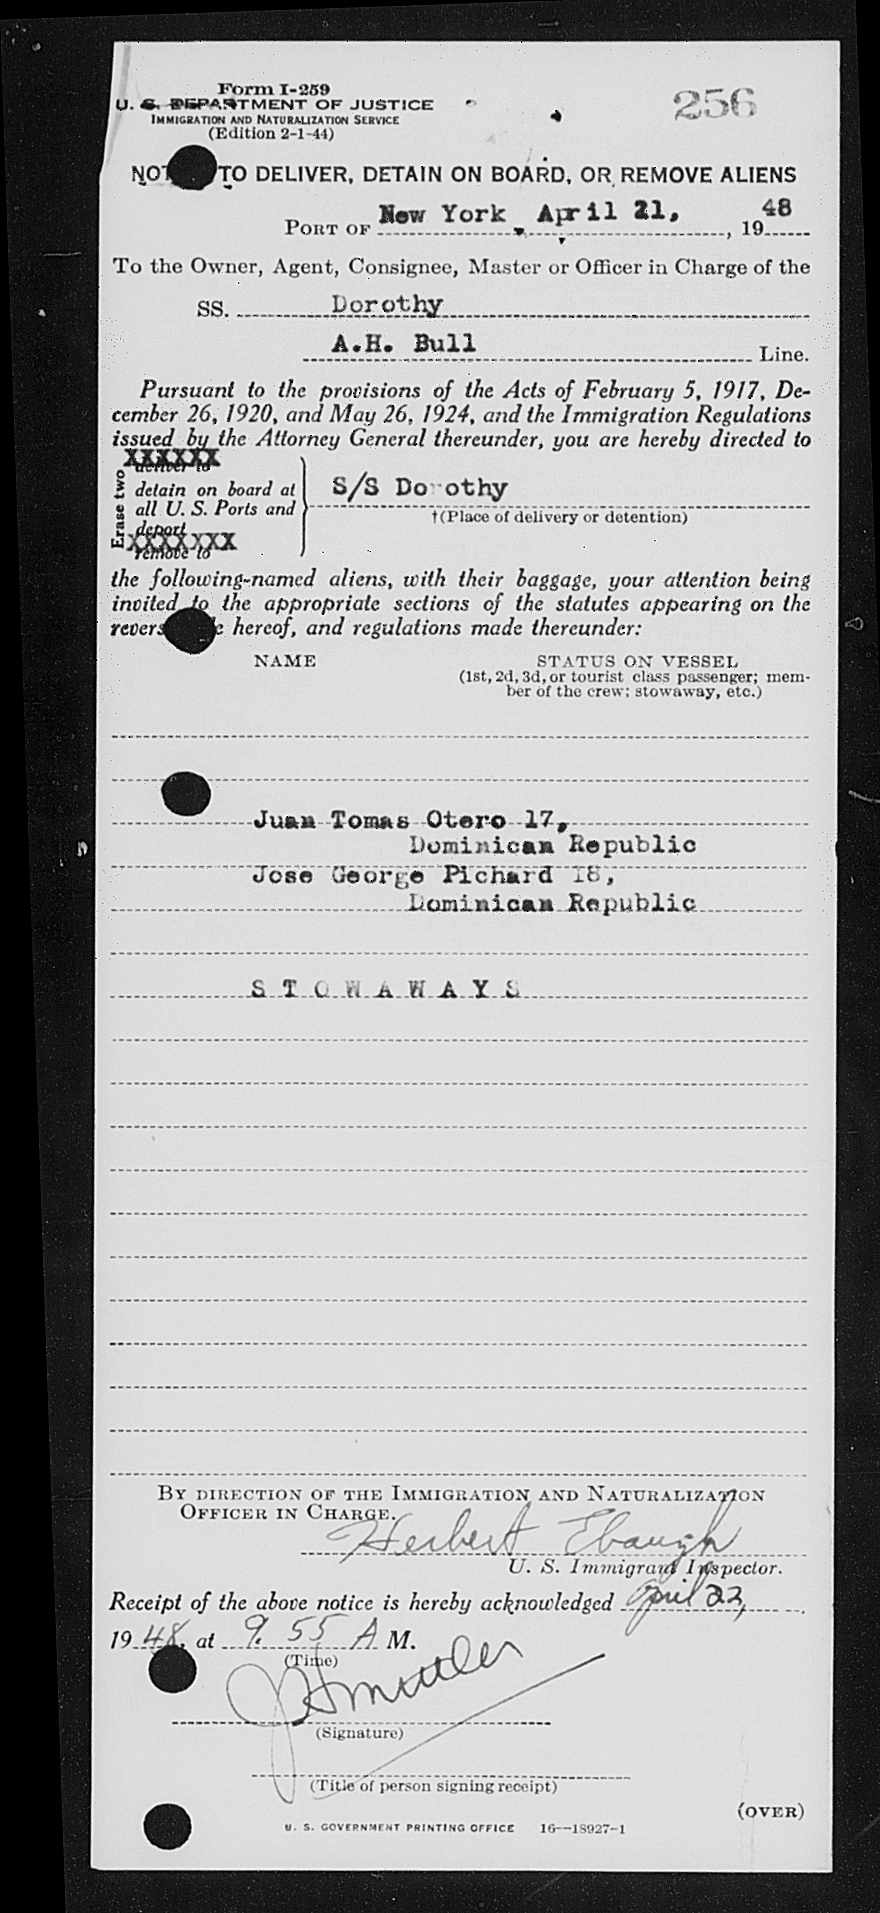 Form I-259
U. S. DEPARTMENT OF JUSTICE
256
IMMIGRATION AND NATURALIZATION SERVICE
(Edition 2-1-44)
TO DELIVER, DETAIN ON BOARD, OR REMOVE ALIENS
PORT OF New York, April 21, 1948
To the Owner, Agent, Consignee, Master or Officer in Charge of the
SS. Dorothy
A.H. Bull Line.
Pursuant to the provisions of the Acts of February 5, 1917, De-
cember 26, 1920, and May 26, 1924, and the Immigration Regulations
issued by the Attorney General thereunder, you are hereby directed to
Erase two
XXXXXX
deliver to
detain on board at
all U. S. Ports and
deport
XXXXXXX
remove to
S/S Dorothy
†(Place of delivery or detention)
the following-named aliens, with their baggage, your attention being
invited to the appropriate sections of the statutes appearing on the
hereof, and regulations made thereunder:
NAME STATUS ON VESSEL
(1st, 2d, 3d, or tourist class passenger; mem-
ber of the crew; stowaway, etc.)
Juan Tomas Otero 17,
Dominican Republic
Jose George Pichard 18,
Dominican Republic
S T O W A W A Y S
BY DIRECTION OF THE IMMIGRATION AND NATURALIZATION
OFFICER IN CHARGE.
Herbert Ebaugh
U. S. Immigrant Inspector.
Receipt of the above notice is hereby acknowledged April 22,
1948, at 9.55 A M.
(Time)
(Signature)
(Title of person signing receipt)
(OVER)
U. S. GOVERNMENT PRINTING OFFICE 16—18927-1